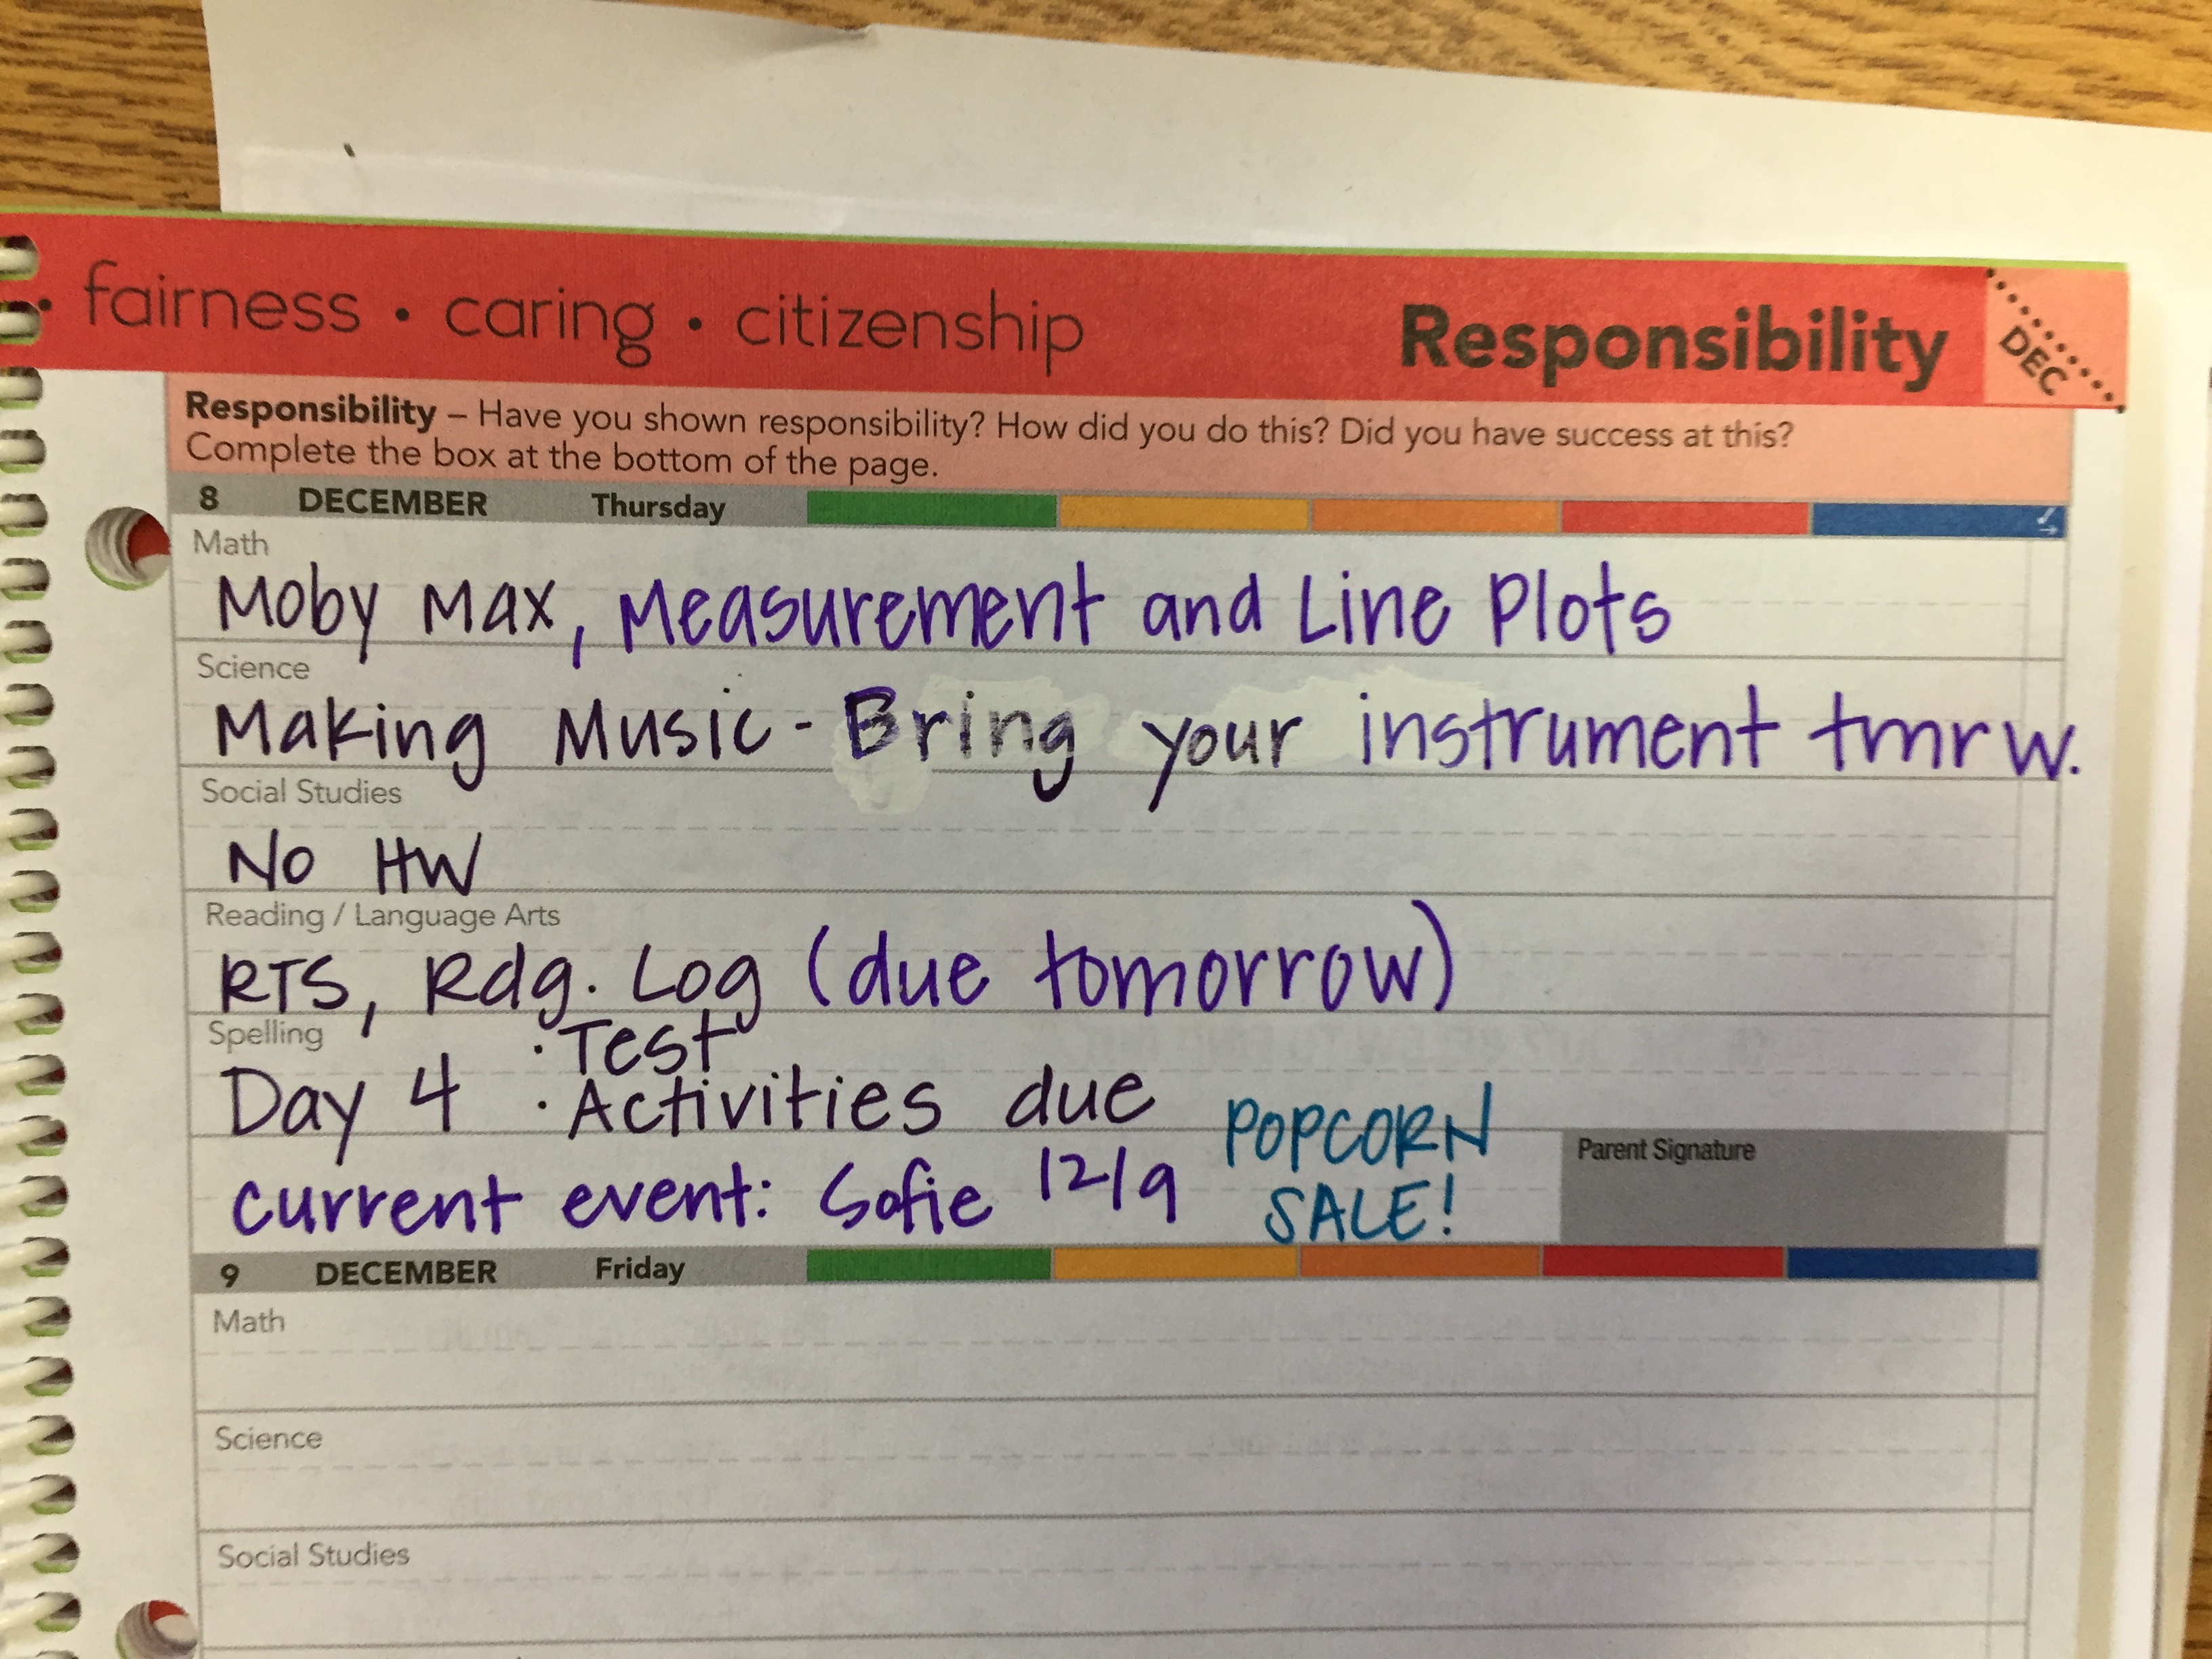 • fairness • caring • citizenship Responsibility DEC
Responsibility – Have you shown responsibility? How did you do this? Did you have success at this?
Complete the box at the bottom of the page.
8 DECEMBER Thursday
Math
Moby Max, Measurement and Line Plots
Science
Making Music - Bring your instrument tmrw.
Social Studies
No HW
Reading / Language Arts
RTS, Rdg. Log (due tomorrow)
Spelling
· Test
Day 4 · Activities due
POPCORN
Parent Signature
current event: Sofie 12/9
SALE!
9 DECEMBER Friday
Math
Science
Social Studies